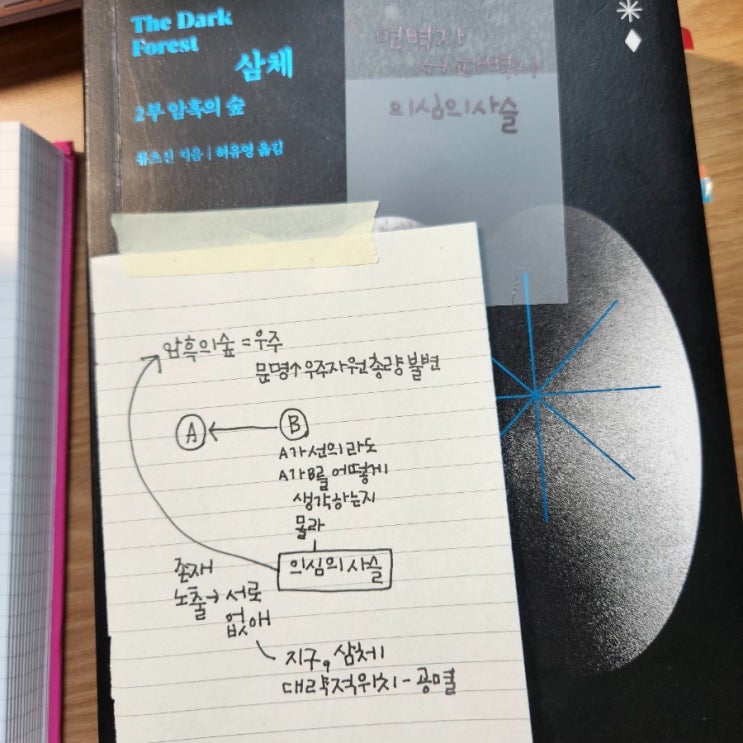 The Dark
Forest
삼체
2부 암흑의 숲
류츠신 지음 | 허유영 옮김
면벽자
↔ 파벽자
의심의사슬
암흑의숲 = 우주
문명↑ 우주자원 총량 불변
A ← B
A가 선의라도
A가 B를 어떻게
생각하는지
몰라
의심의 사슬
존재
노출 → 서로
없애
지구, 삼체
대략적위치 - 공멸